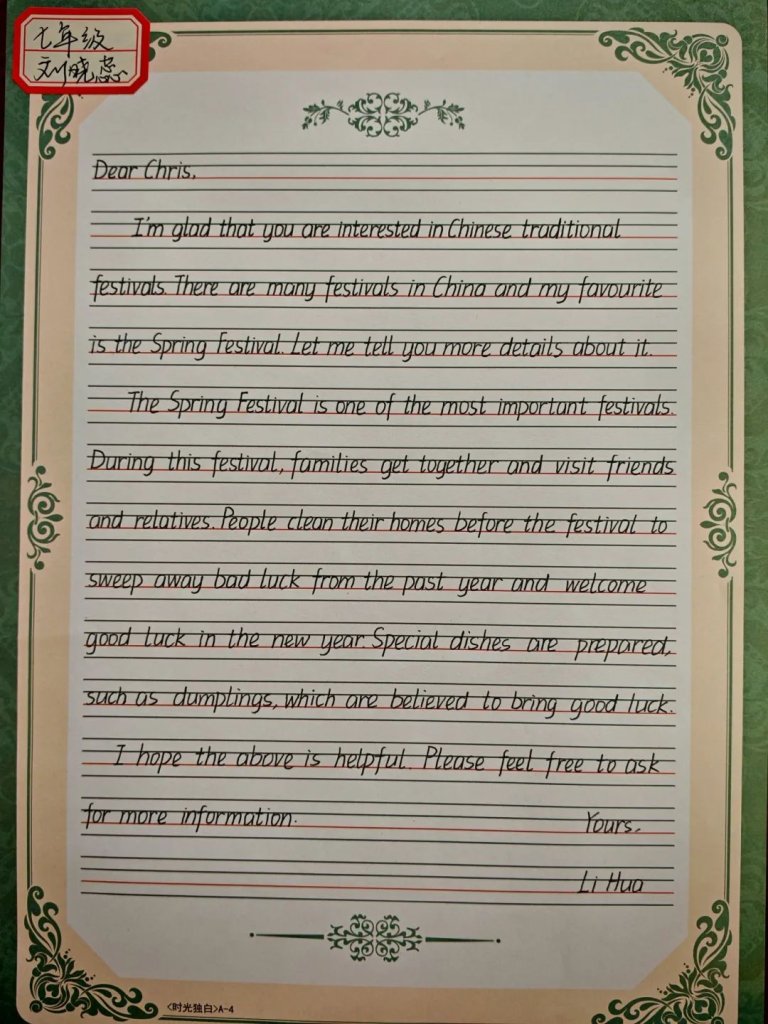 七年级
刘晓蕊
Dear Chris,
I'm glad that you are interested in Chinese traditional
festivals. There are many festivals in China and my favourite
is the Spring Festival. Let me tell you more details about it.
The Spring Festival is one of the most important festivals.
During this festival, families get together and visit friends
and relatives. People clean their homes before the festival to
sweep away bad luck from the past year and welcome
good luck in the new year. Special dishes are prepared,
such as dumplings, which are believed to bring good luck.
I hope the above is helpful. Please feel free to ask
for more information. Yours,
Li Hua
<时光独白>A-4